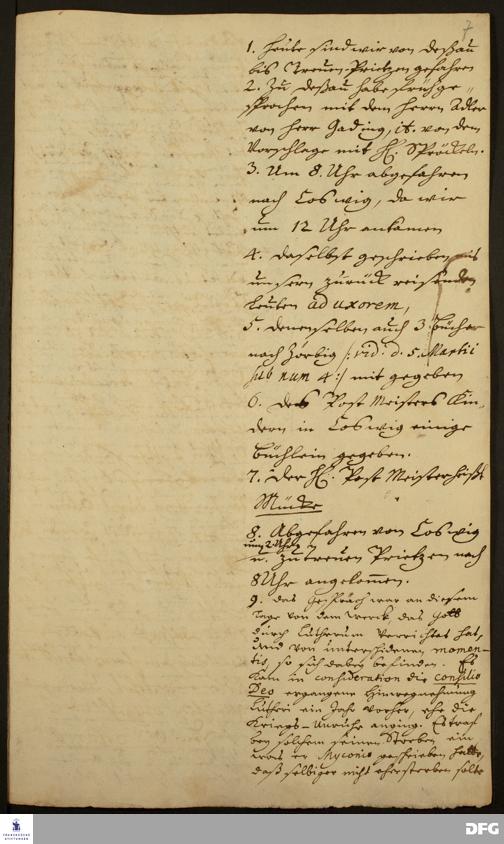 7
1. Heute sind wir von Deßau
bis Treuen-Prietzen gefahren
2. Zu Deßau habe früh ge-
sprochen mit dem Herrn Adler
von Herr Gading, it. von dem
Vorschlage mit H. Sprödeln.
3. Um 8. Uhr abgefahren
nach Coswig, da wir
um 12 Uhr ankamen
4. Daselbst geschrieben mit
unsern zurück reisenden
Leuten ad uxorem,
5. denenselben auch 3 Bücher
nach Zörbig /: vid. d. 5. Martii
sub num 4 :/ mit gegeben
6. Des Post Meisters Kin-
dern in Coswig einige
Büchlein gegeben.
7. Der H. Post Meister heißt
Mücke
8. Abgefahren von Coswig
um 2 Uhr
u. zu Treuen Prietzen nach
8 Uhr angekommen.
9. Das Gespräch war an diesem
Tage von dem Werck, das Gott
durch Lutherum verrichtet hat,
und von unterschidenen momen-
tis, so sich dabey befinden. Es
kam in consideration die consilio
Deo ergangene Hinwegnehmung
Lutheri ein Jahr vorher, ehe die
Kriegs-Unruhe anging. Es traf
bey solchem seinen Sterben ein
was er Myconio geschrieben hatte,
daß selbiger nicht ehe sterben solte
FRANCKESCHE STIFTUNGEN
DFG